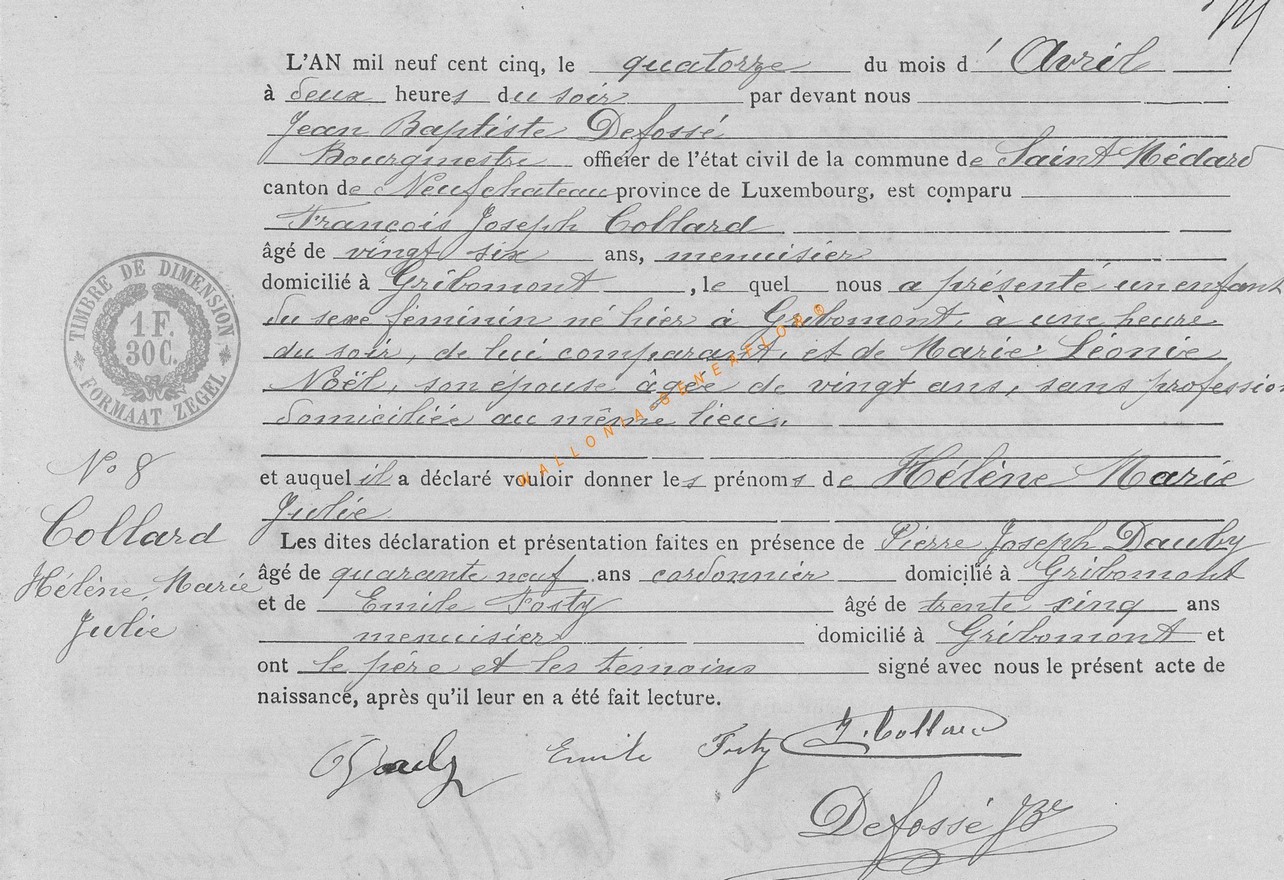 L'AN mil neuf cent cinq, le quatorze du mois d' Avril
à deux heures du soir par devant nous
Jean Baptiste Defossé
Bourgmestre officier de l'état civil de la commune de Saint Médard
canton de Neufchateau province de Luxembourg, est comparu
François Joseph Collard
âgé de vingt six ans, menuisier
domicilié à Gribomont, le quel nous a présenté un enfant
du sexe féminin né hier à Gribomont, à une heure
du soir, de lui comparant, et de Marie Léonie
Noël, son épouse âgée de vingt ans, sans profession
domiciliée au même lieu.
et auquel il a déclaré vouloir donner les prénoms de Hélène Marie
Julie
Les dites déclaration et présentation faites en présence de Pierre Joseph Dauby
âgé de quarante neuf ans cordonnier domicilié à Gribomont
et de Emile Fosty âgé de trente cinq ans
menuisier domicilié à Gribomont et
ont le père et les témoins signé avec nous le présent acte de
naissance, après qu'il leur en a été fait lecture.
TIMBRE DE DIMENSION
1 F.
30 C.
FORMAAT ZEGEL
N° 8
Collard
Hélène, Marie
Julie
WALLONIA-GENEAFLOR©
Emile Fosty J. Collard
Defossé JBte